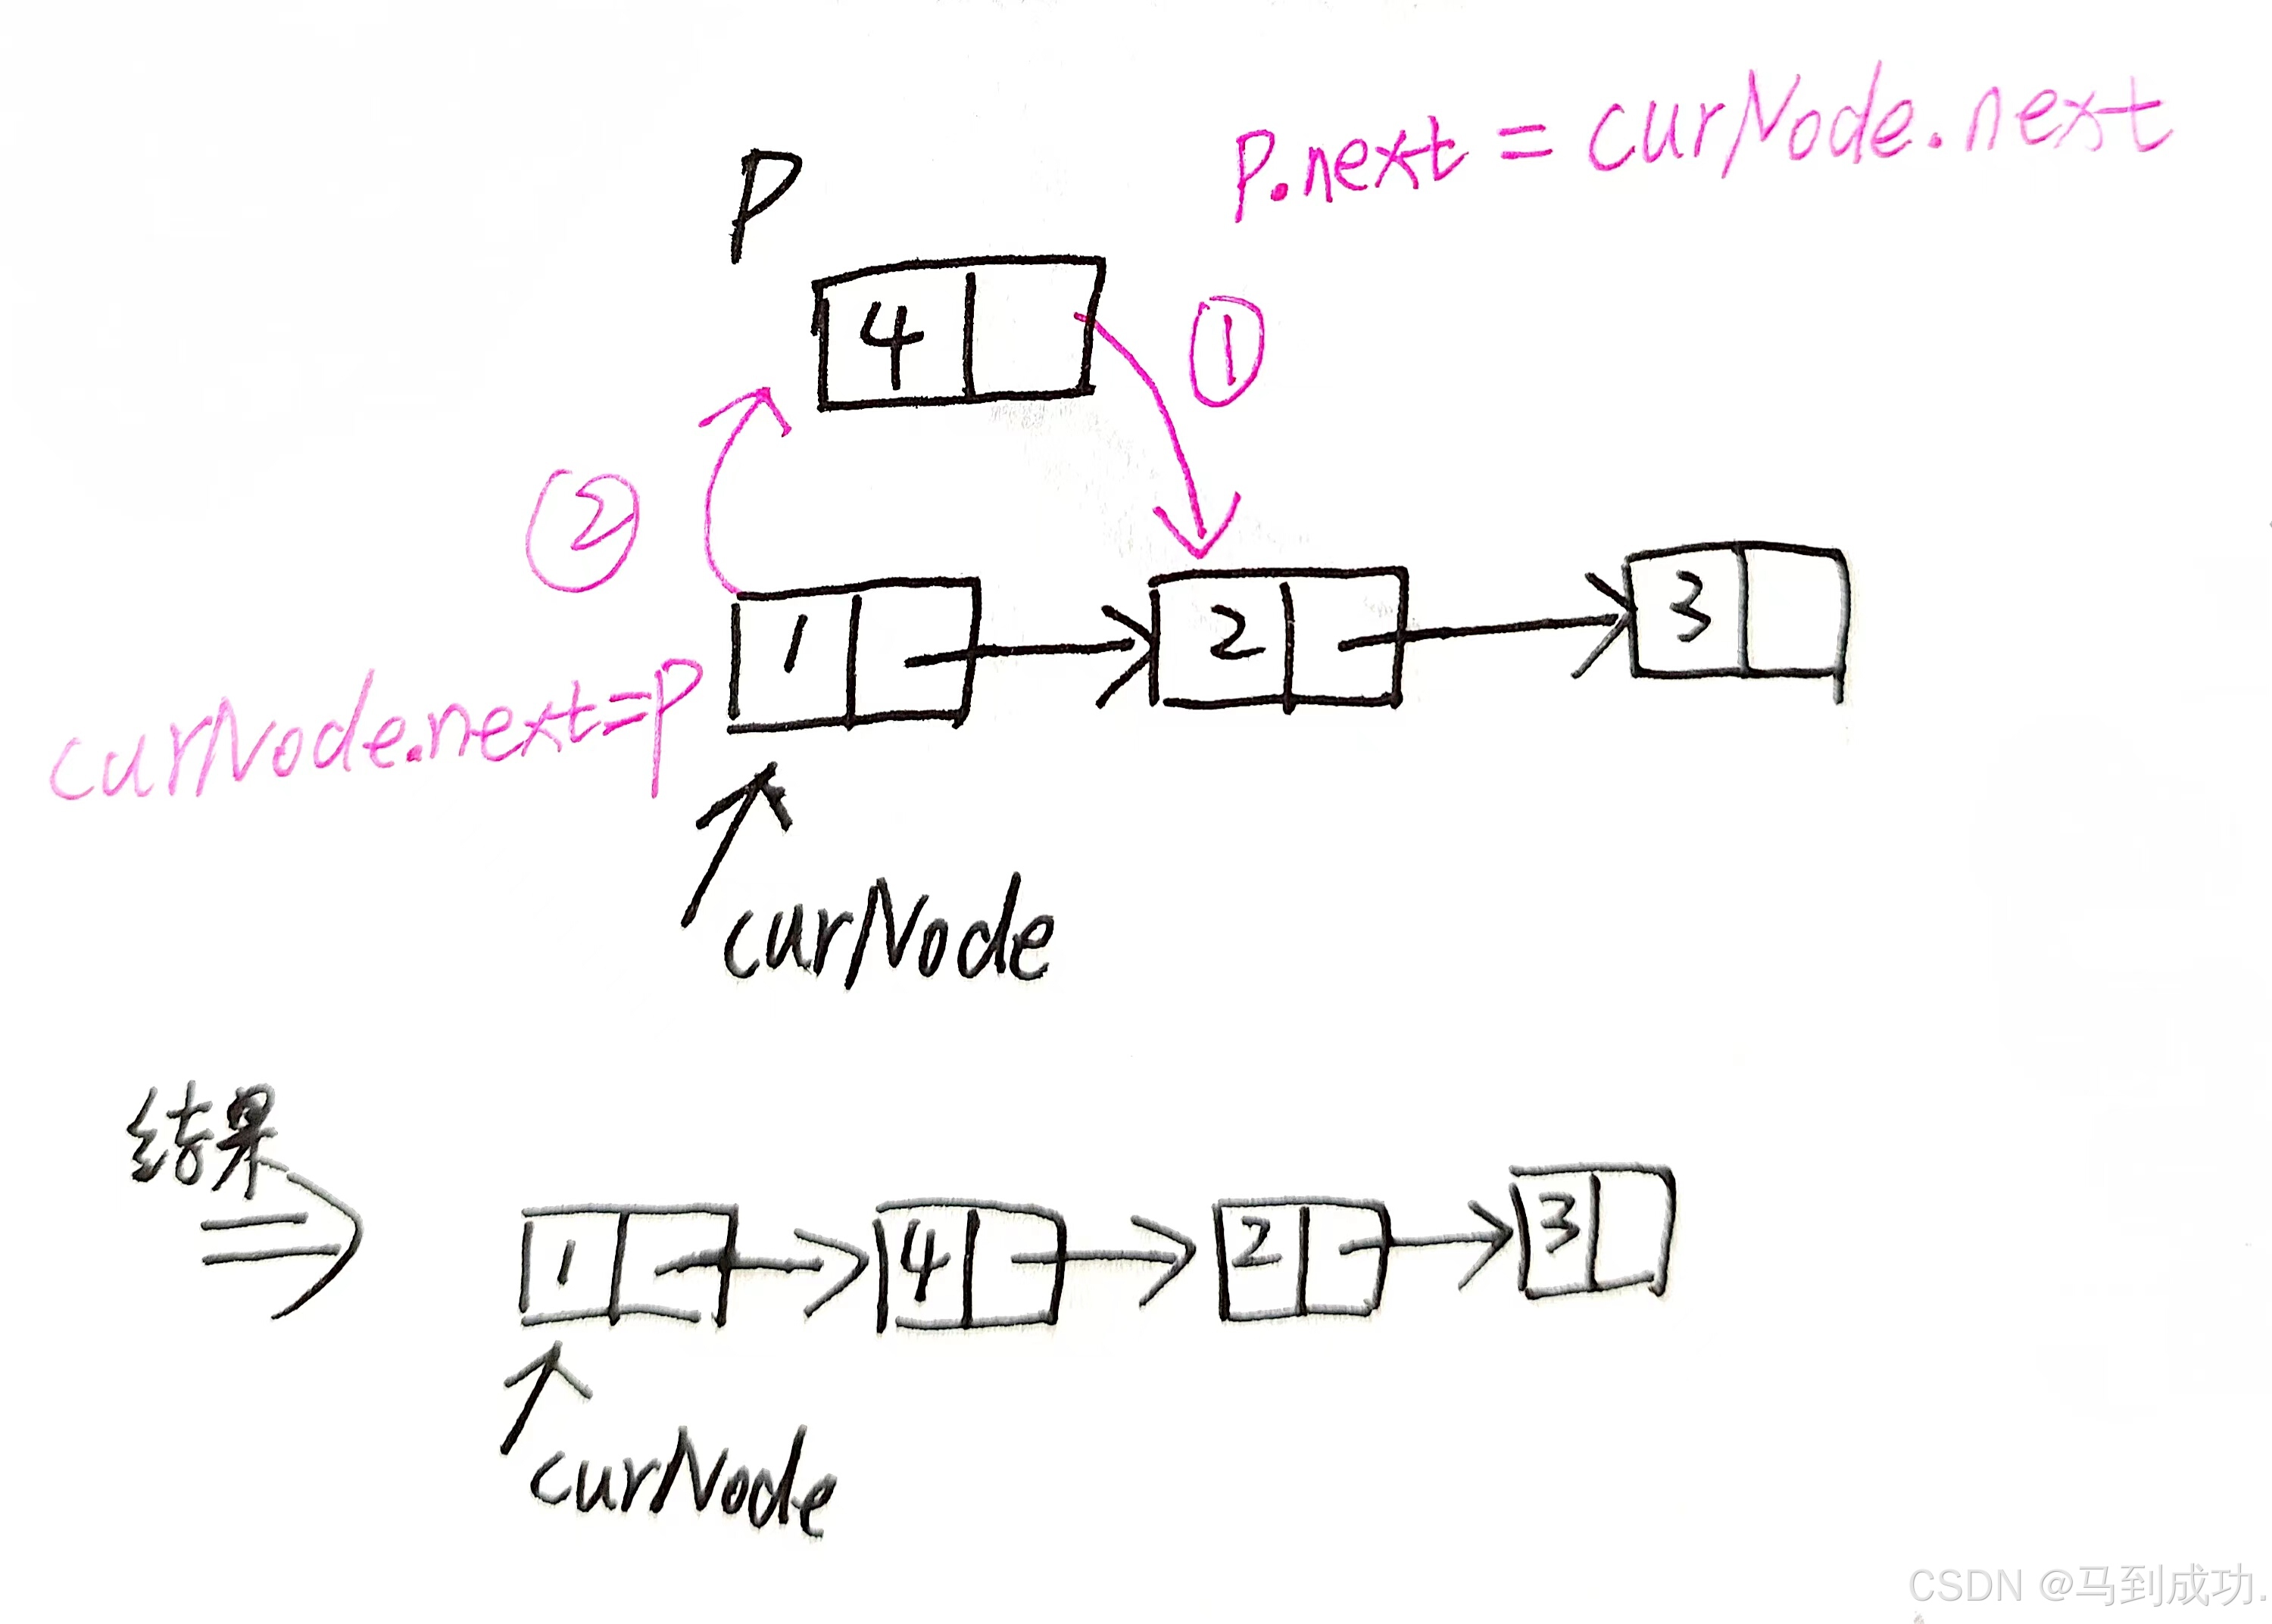 P.next = curNode.next
P
4
①
②
1
2
3
curNode.next=P
curNode
结果
1
4
2
3
curNode
CSDN @马到成功.